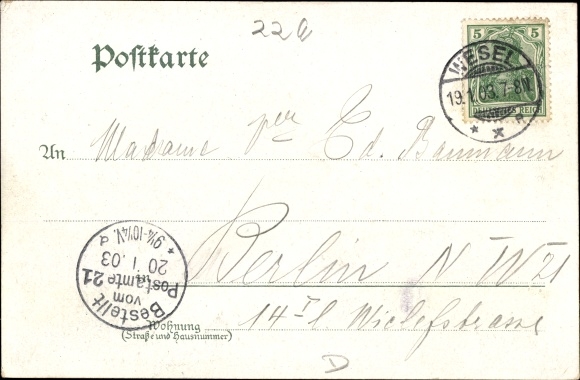 22a
Postkarte
5 5
DEUTSCHES REICH
WESEL
19.1.03.7-8N.
An Madame Ed. Baumann
Berlin N W 21
Bestellt
vom
Postamte 21
20 1.03
9¼-10¼V.
Wohnung
(Straße und Hausnummer)
14 I l Wiclefstrasse
D